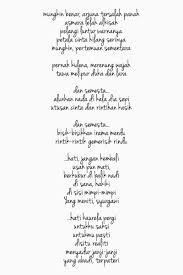 mungkin benar, arjuna tersalah panah
asmara lelah alkisah
pelangi luntur warnanya
petala cinta hilang serinya
mungkin, pertemuan sementara
pernah kulena, merenung wajah
tawa melipur duka dan lara
dan semesta...
alunkan nada di kala dia sepi
utusan cinta dan rintihan kasih
dan semesta...
bisik-bisikkan irama merdu
rintik-rintik gemersik rindu
...hati, jangan kembali
usah pun mati,
berkubur di balik nadi
di sana, kakiri
di sisi mimpi-mimpi
yang meniti, syurgawi
...hati haurela pergi
untukku saksi
untukmu pasti
disita realiti
menyadur janji-janji
yang abadi, terpateri